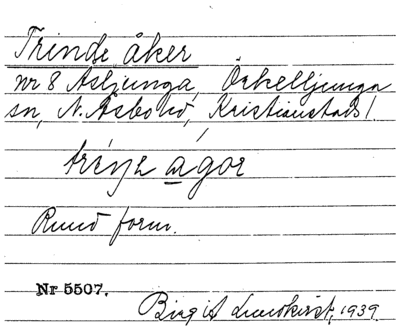 Trinde åker
nr 8 Åsljunga, Örkelljunga
sn, N. Åsbohd, Kristianstads l
Rund form.
Nr 5507.
Birgit Lundkvist, 1939.